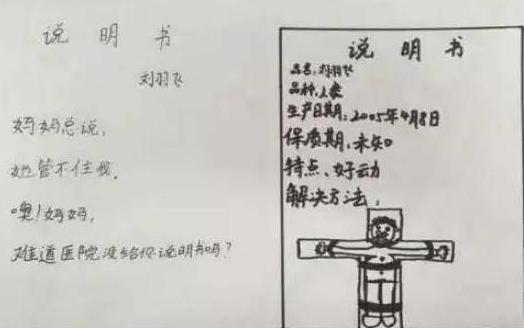 说明书
刘羽飞
妈妈总说,
她管不住我。
噢!妈妈,
难道医院没给你说明书吗?
说明书
品名:刘羽飞
品种:人类
生产日期:2005年4月8日
保质期:未知
特点:好动
解决方法: